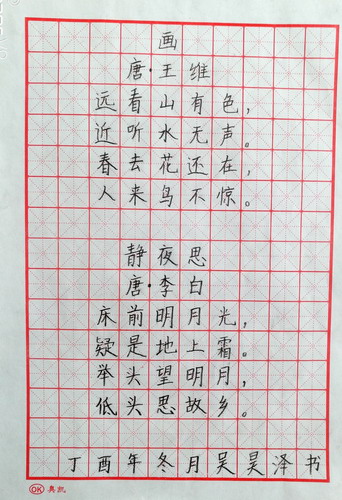 画
唐·王维
远看山有色，
近听水无声。
春去花还在，
人来鸟不惊。
静夜思
唐·李白
床前明月光，
疑是地上霜。
举头望明月，
低头思故乡。
丁酉年冬月吴昊泽书
OK 奥凯